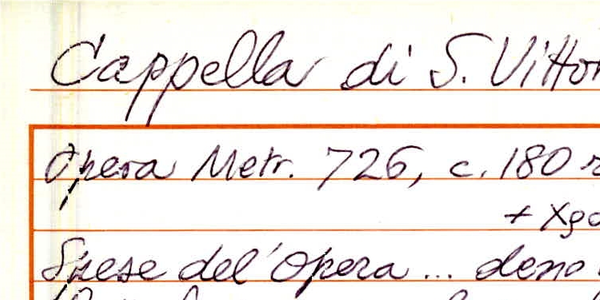 Cappella di S. Vittor
Opera Metr. 726, c. 180 r
+ Xgo
Spese del'Opera ... deno